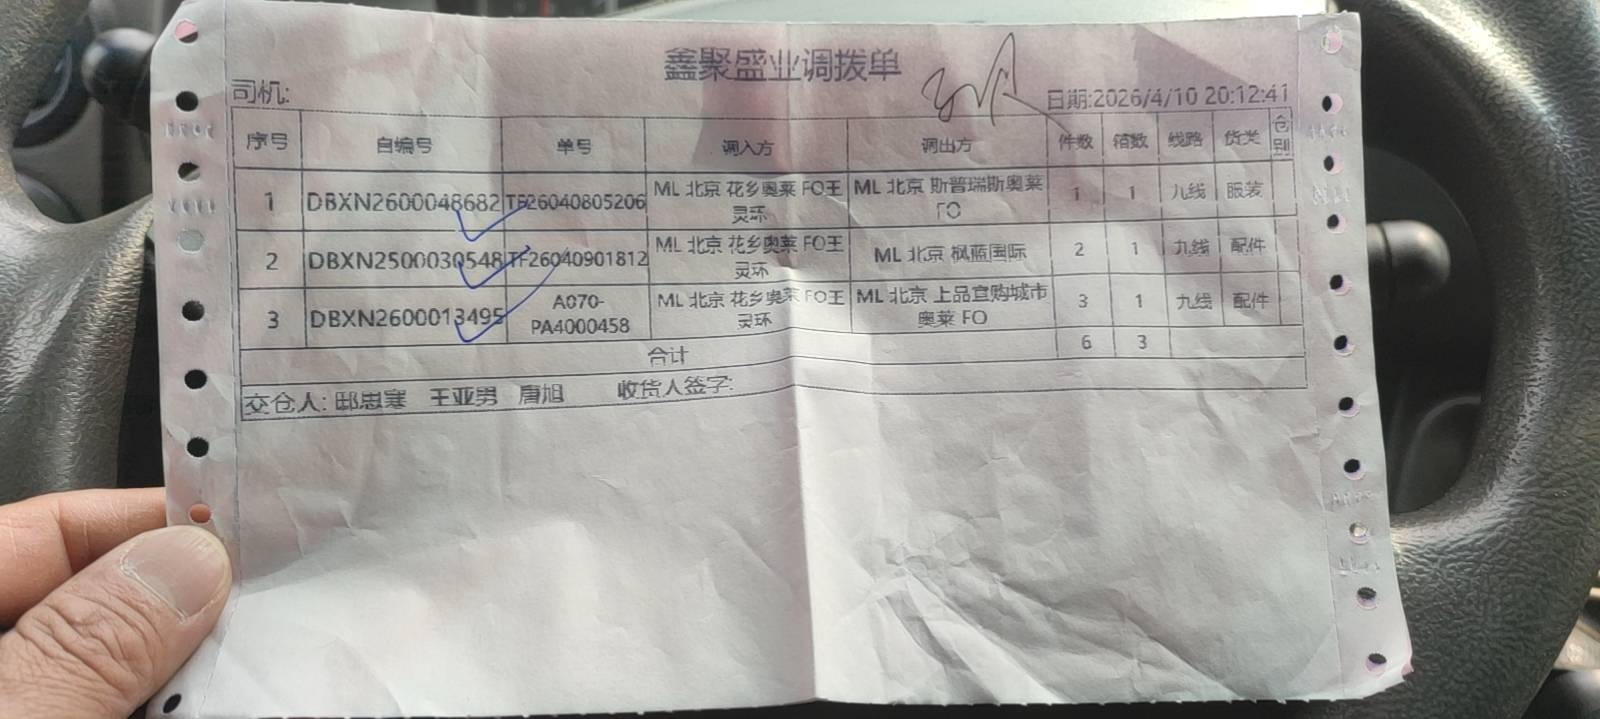 鑫聚盛业调拨单
司机:
日期:2026/4/10 20:12:41
序号 自编号 单号 调入方 调出方 件数 箱数 线路 货类 仓别
1 DBXN2600048682 TF26040805206 ML 北京 花乡奥莱 FO王灵环 ML 北京 斯普瑞斯奥莱 FO 1 1 九线 服装
2 DBXN2500030548 TF26040901812 ML 北京 花乡奥莱 FO王灵环 ML 北京 枫蓝国际 2 1 九线 配件
3 DBXN2600013495 A070-PA4000458 ML 北京 花乡奥莱 FO王灵环 ML 北京 上品宜购城市奥莱 FO 3 1 九线 配件
合计 6 3
交仓人: 邸思寒 王亚男 唐旭 收货人签字: